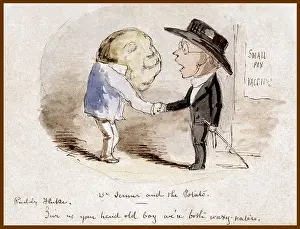 SMALL
POX
VACCINE
Dr Jenner and the Potato.
Paddy
us your hand old boy we're both waxy-naters.